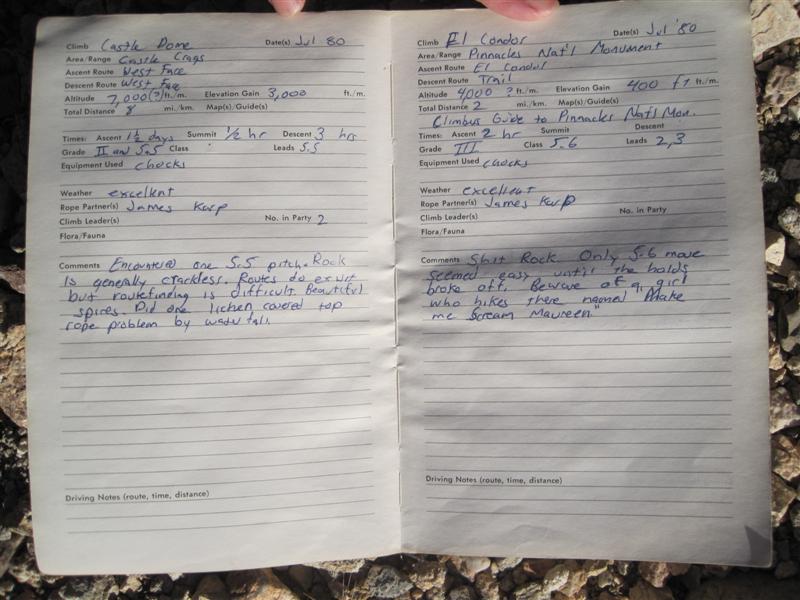 Climb Castle Dome Date(s) Jul 80
Area/Range Castle Crags
Ascent Route West Face
Descent Route West Face
Altitude 7,000(?) ft./m. Elevation Gain 3,000 ft./m.
Total Distance 8 mi./km. Map(s)/Guide(s)
Times: Ascent 1½ days Summit ½ hr Descent 3 hr.
Grade II or 5.5 Class Leads 5.5
Equipment Used chocks
Weather excellent
Rope Partner(s) James Karp
Climb Leader(s) No. in Party 2
Flora/Fauna
Comments Encountered one 5.5 pitch. Rock
is generally crackless. Routes do exist
but routefinding is difficult. Beautiful
spires. Did one lichen covered top
rope problem by waterfall.
Driving Notes (route, time, distance)
Climb El Condor Date(s) Jul '80
Area/Range Pinnacles Nat'l Monument
Ascent Route El Condor
Descent Route Trail
Altitude 4000 ? ft./m. Elevation Gain 400 ft ft./m.
Total Distance 2 mi./km. Map(s)/Guide(s)
Climbers Guide to Pinnacles Nat'l Mon.
Times: Ascent 2 hr Summit Descent
Grade III Class 5.6 Leads 2,3
Equipment Used chocks
Weather excellent
Rope Partner(s) James Karp
Climb Leader(s) No. in Party
Flora/Fauna
Comments Shit Rock. Only 5.6 move
seemed easy until the holds
broke off. Beware of a girl
who hikes there named "Make
me Scream Maureen"
Driving Notes (route, time, distance)